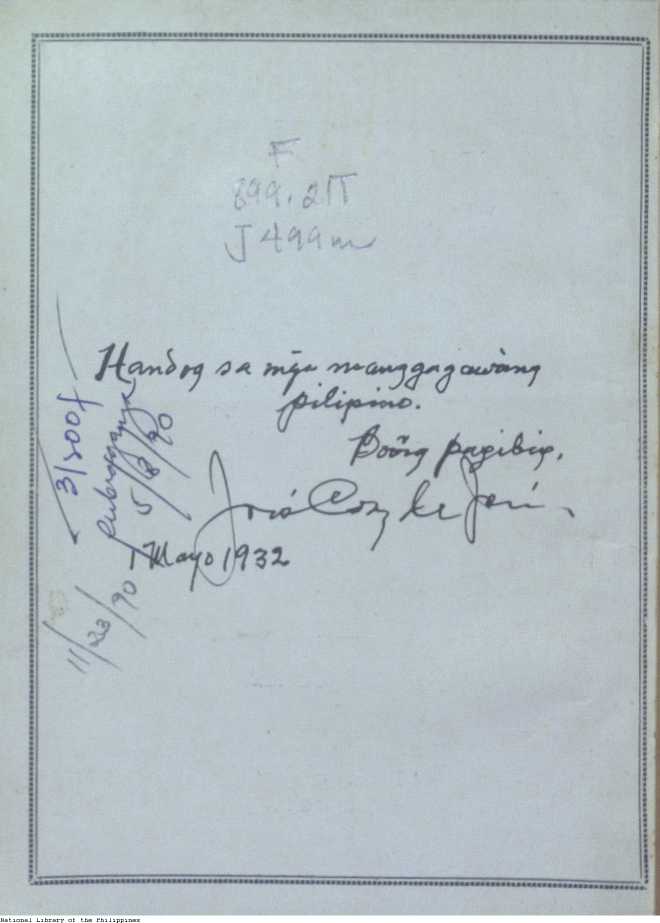 F
899.21T
J499m
Handog sa mga manggagawàng
pilipino.
Boông pagibig,
José Corazón de Jesús
1 Mayo 1932
31200f
5/8/90
11/23/90
National Library of the Philippines